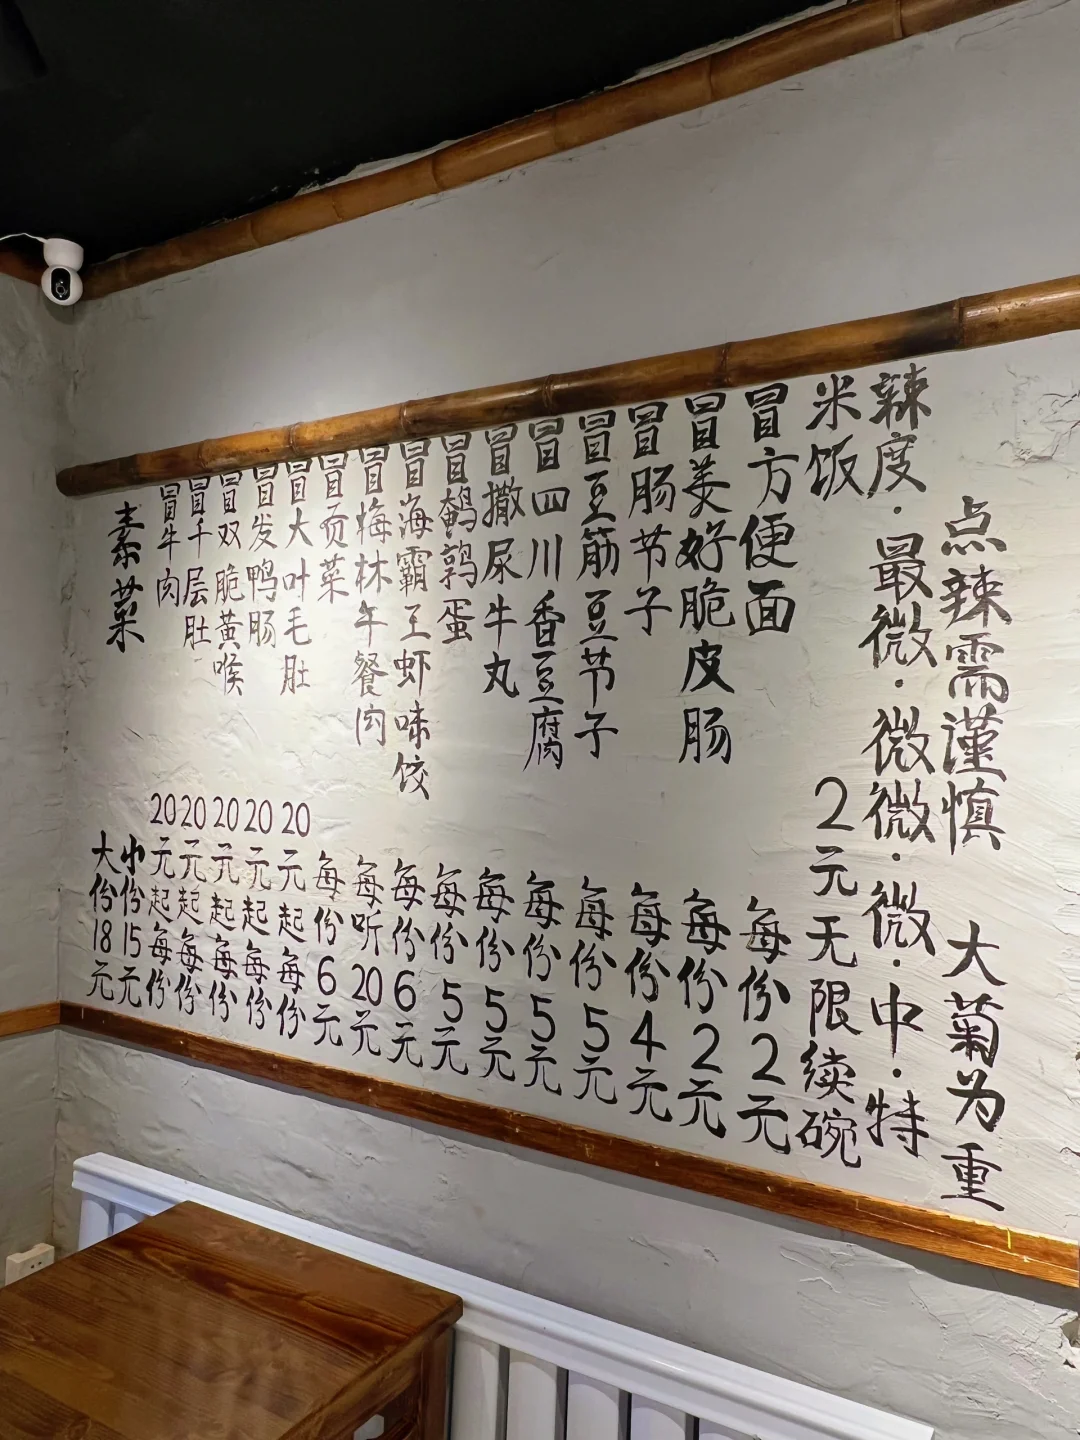 点辣需谨慎 大菊为重
辣度·最微·微微·微·中·特
米饭 2元无限续碗
冒方便面 每份2元
冒美好脆皮肠 每份2元
冒肠节子 每份4元
冒豆筋豆节子 每份5元
冒四川香豆腐 每份5元
冒撒尿牛丸 每份5元
冒鹌鹑蛋 每份5元
冒海霸王虾味饺 每份6元
冒梅林午餐肉 每听20元
冒贡菜 每份6元
冒大叶毛肚 20元起每份
冒发鸭肠 20元起每份
冒双脆黄喉 20元起每份
冒千层肚 20元起每份
冒牛肉 20元起每份
素菜 小份15元
大份18元